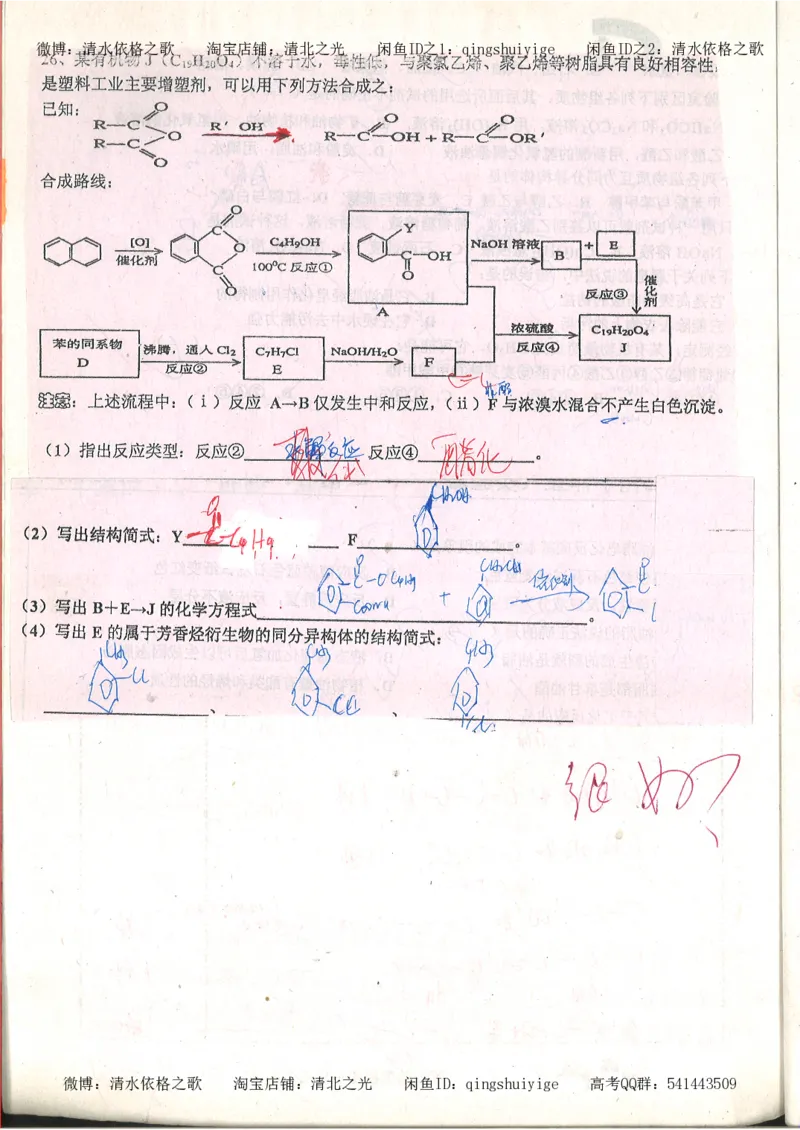 微博：清水依格之歌 淘宝店铺：清北之光 闲鱼ID之1：qingshuiyige 闲鱼ID之2：清水依格之歌
26、某有机物 J（C₁₉H₂₀O₄）不溶于水，毒性低，与聚氯乙烯、聚乙烯等树脂具有良好相容性，
是塑料工业主要增塑剂，可以用下列方法合成之：
已知：
R－C O O R－C O
R′ OH
R－C O OH + R－C O OR′
合成路线：
[O] 催化剂
O C O C O
C₄H₉OH 100⁰C 反应①
Y C－OH O
A
NaOH 溶液
B + E
反应③ 催化剂
浓硫酸 反应④
C₁₉H₂₀O₄ J
苯的同系物 D
沸腾，通入 Cl₂ 反应②
C₇H₇Cl E
NaOH/H₂O
F
注意：上述流程中：（ⅰ）反应 A→B 仅发生中和反应，（ⅱ）F 与浓溴水混合不产生白色沉淀。
（1）指出反应类型：反应② 取代 反应④ 酯化。
（2）写出结构简式：Y -C-C₄H₉ F CH₂OH。
（3）写出 B＋E→J 的化学方程式 C-OC₄H₉ COONa + CH₂Cl 催化剂。
（4）写出 E 的属于芳香烃衍生物的同分异构体的结构简式：
CH₃ Cl、CH₃ Cl、CH₃ Cl
微博：清水依格之歌 淘宝店铺：清北之光 闲鱼ID：qingshuiyige 高考QQ群：541443509